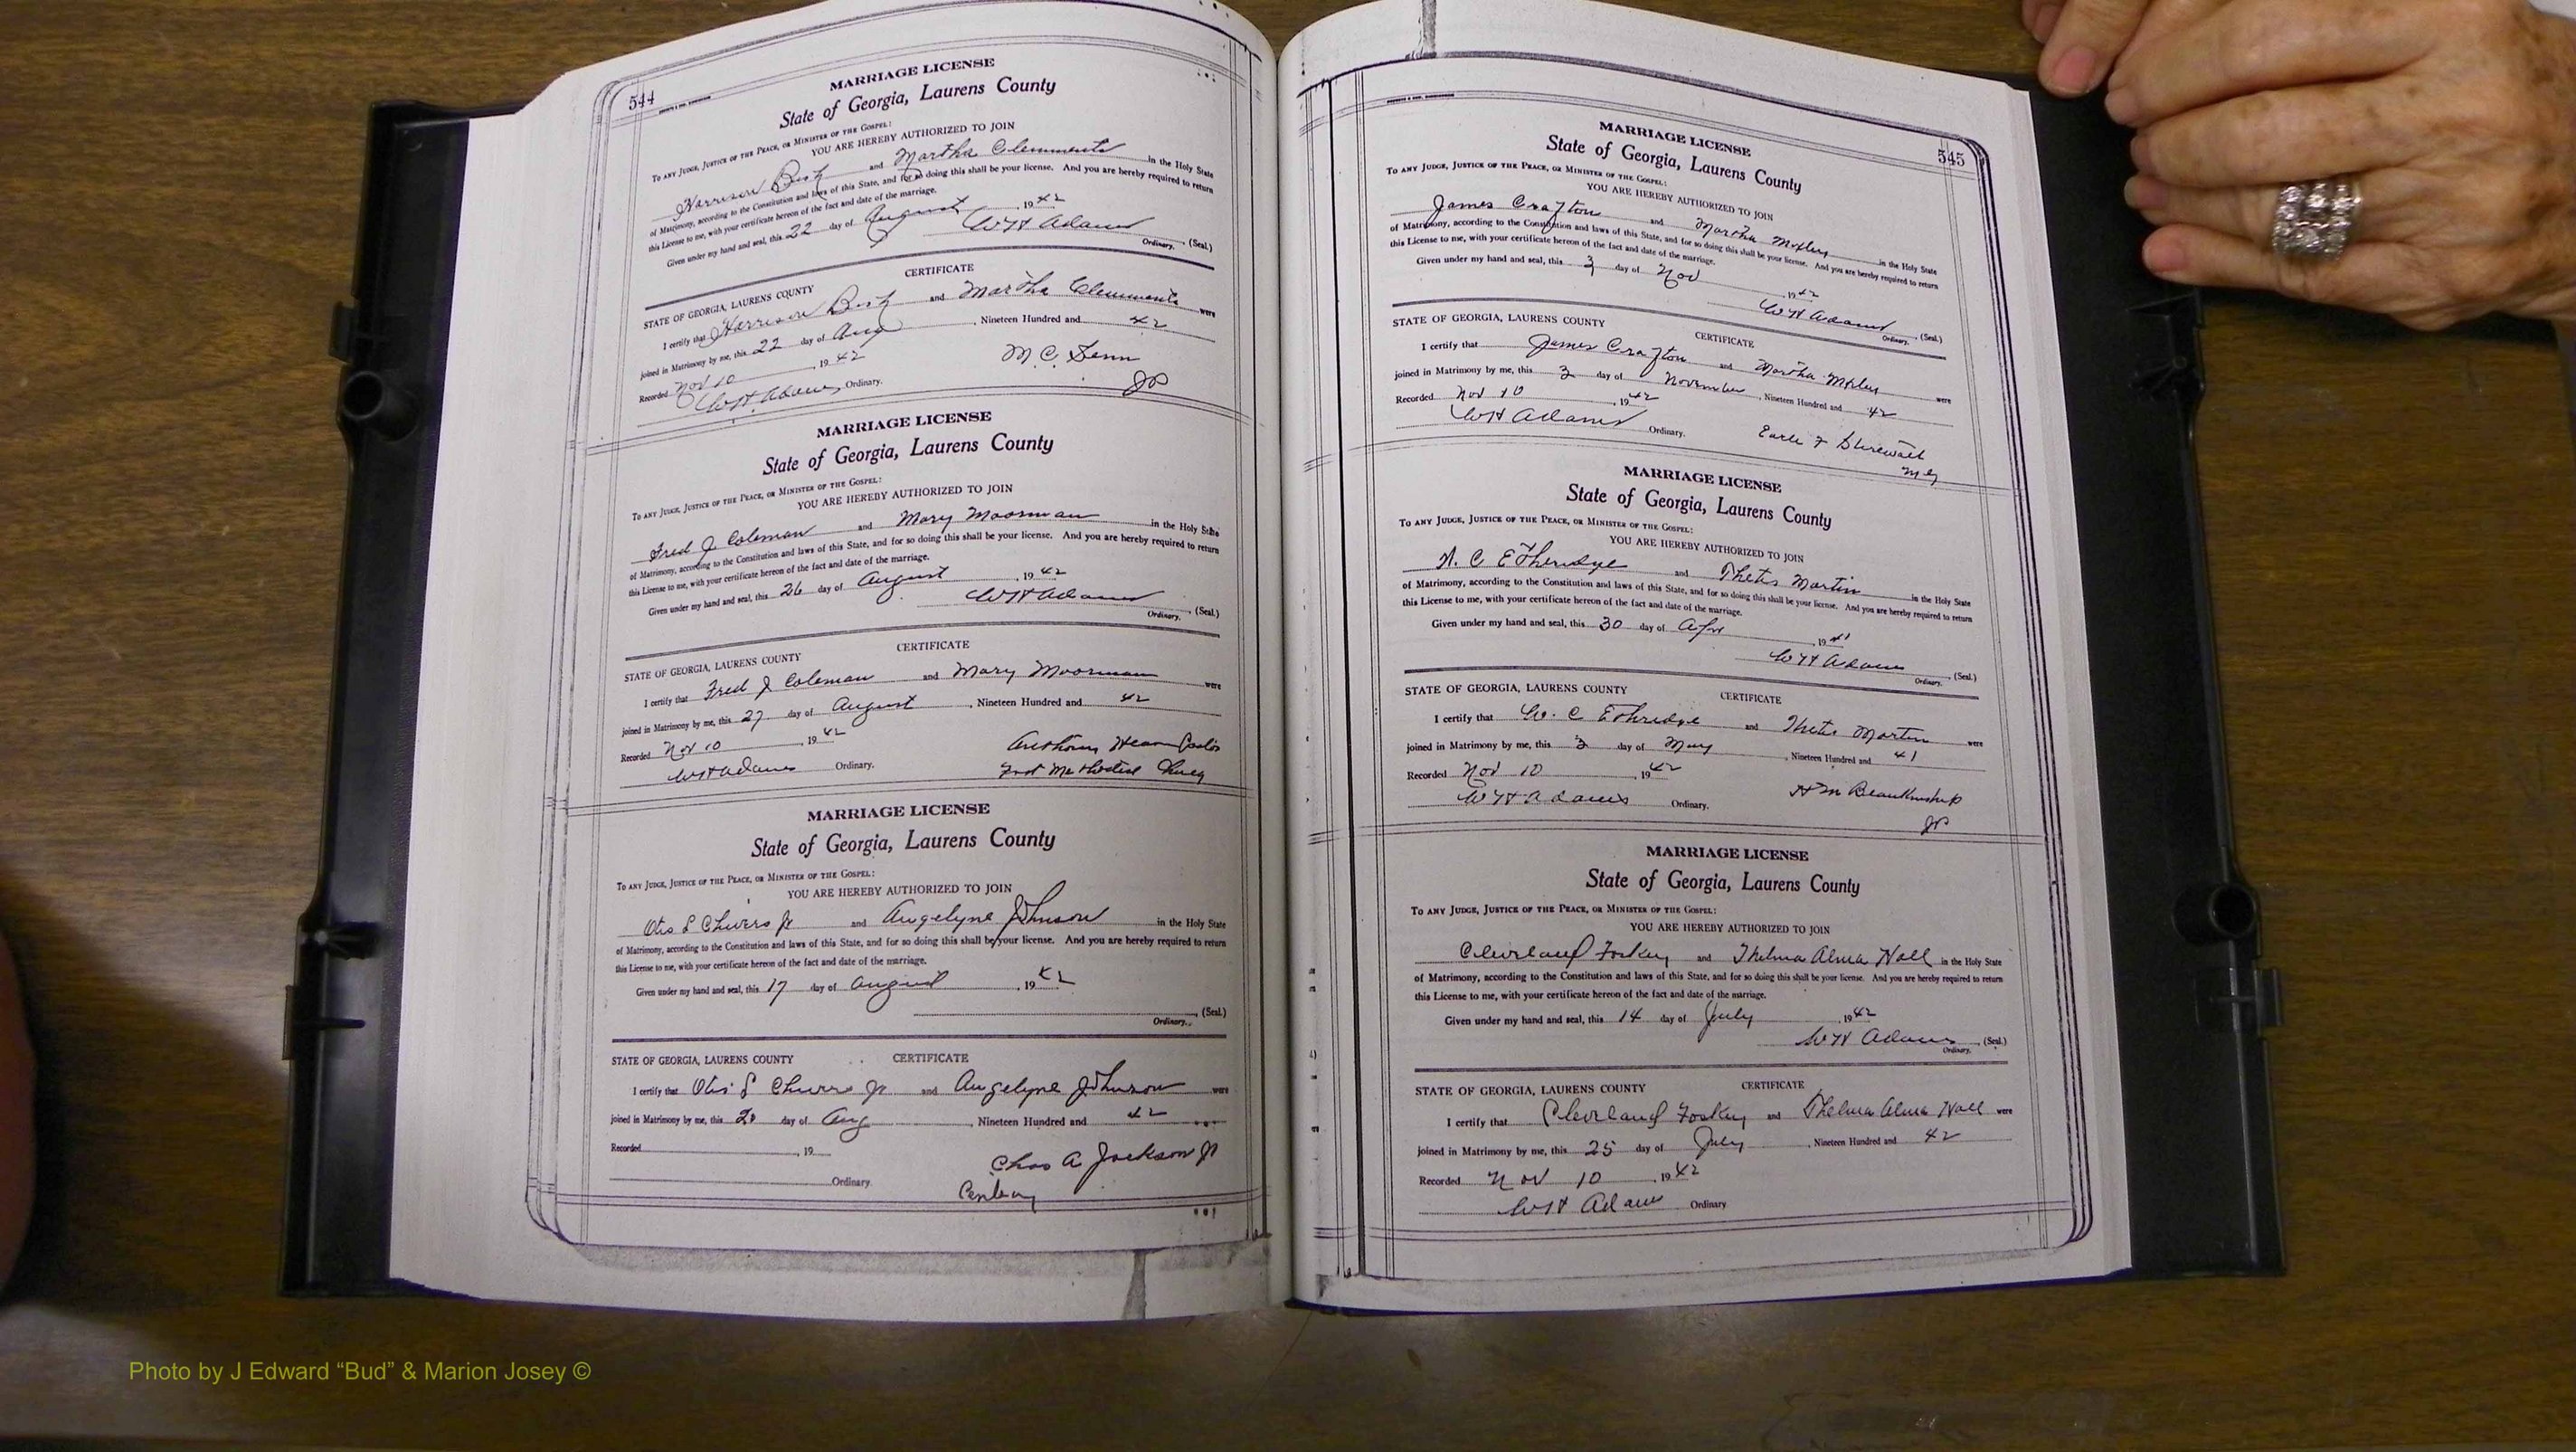 544
MARRIAGE LICENSE
State of Georgia, Laurens County
To any Judge, Justice of the Peace, or Minister of the Gospel:
YOU ARE HEREBY AUTHORIZED TO JOIN
Harrison and Martha Clemments in the Holy State
of Matrimony, according to the Constitution and laws of this State, and for so doing this shall be your license. And you are hereby required to return
this License to me, with your certificate hereon of the fact and date of the marriage.
Given under my hand and seal, this 22 day of August, 1942
WH Adams (Seal.)
Ordinary.
CERTIFICATE
STATE OF GEORGIA, LAURENS COUNTY
I certify that Harrison and Martha Clemments were
joined in Matrimony by me, this 22 day of Aug, Nineteen Hundred and 42
Recorded Nov 10, 1942
WH Adams, Ordinary.
M. C.
JP
MARRIAGE LICENSE
State of Georgia, Laurens County
To any Judge, Justice of the Peace, or Minister of the Gospel:
YOU ARE HEREBY AUTHORIZED TO JOIN
Fred J Coleman and Mary Moorman in the Holy State
of Matrimony, according to the Constitution and laws of this State, and for so doing this shall be your license. And you are hereby required to return
this License to me, with your certificate hereon of the fact and date of the marriage.
Given under my hand and seal, this 26 day of August, 1942
WH Adams (Seal.)
Ordinary.
CERTIFICATE
STATE OF GEORGIA, LAURENS COUNTY
I certify that Fred J Coleman and Mary Moorman were
joined in Matrimony by me, this 27 day of August, Nineteen Hundred and 42
Recorded Nov 10, 1942
WH Adams Ordinary.
Anthony Hearn Pastor
First Methodist Church
MARRIAGE LICENSE
State of Georgia, Laurens County
To any Judge, Justice of the Peace, or Minister of the Gospel:
YOU ARE HEREBY AUTHORIZED TO JOIN
Otis S Chivers Jr and Angelyne Johnson in the Holy State
of Matrimony, according to the Constitution and laws of this State, and for so doing this shall be your license. And you are hereby required to return
this License to me, with your certificate hereon of the fact and date of the marriage.
Given under my hand and seal, this 17 day of August, 1942
(Seal.)
Ordinary.
CERTIFICATE
STATE OF GEORGIA, LAURENS COUNTY
I certify that Otis S Chivers Jr and Angelyne Johnson were
joined in Matrimony by me, this 20 day of Aug, Nineteen Hundred and 42
Recorded, 19
Ordinary.
Chas A Jackson Jr
545
MARRIAGE LICENSE
State of Georgia, Laurens County
To any Judge, Justice of the Peace, or Minister of the Gospel:
YOU ARE HEREBY AUTHORIZED TO JOIN
James Crafton and Martha in the Holy State
of Matrimony, according to the Constitution and laws of this State, and for so doing this shall be your license. And you are hereby required to return
this License to me, with your certificate hereon of the fact and date of the marriage.
Given under my hand and seal, this 3 day of Nov, 1942
WH Adams (Seal.)
Ordinary.
STATE OF GEORGIA, LAURENS COUNTY
CERTIFICATE
I certify that James Crafton and Martha were
joined in Matrimony by me, this 3 day of November, Nineteen Hundred and 42
Recorded Nov 10, 1942
WH Adams Ordinary.
Earle F Stirewalt
MG
MARRIAGE LICENSE
State of Georgia, Laurens County
To any Judge, Justice of the Peace, or Minister of the Gospel:
YOU ARE HEREBY AUTHORIZED TO JOIN
C Etheridge and Thetis Martin in the Holy State
of Matrimony, according to the Constitution and laws of this State, and for so doing this shall be your license. And you are hereby required to return
this License to me, with your certificate hereon of the fact and date of the marriage.
Given under my hand and seal, this 30 day of Apr, 1941
WH Adams (Seal.)
Ordinary.
STATE OF GEORGIA, LAURENS COUNTY
CERTIFICATE
I certify that W. C Ethridge and Thetis Martin were
joined in Matrimony by me, this 3 day of May, Nineteen Hundred and 41
Recorded Nov 10, 1942
WH Adams Ordinary.
H M Blankinship
JP
MARRIAGE LICENSE
State of Georgia, Laurens County
To any Judge, Justice of the Peace, or Minister of the Gospel:
YOU ARE HEREBY AUTHORIZED TO JOIN
Cleveland Foskey and Thelma Alma Hall in the Holy State
of Matrimony, according to the Constitution and laws of this State, and for so doing this shall be your license. And you are hereby required to return
this License to me, with your certificate hereon of the fact and date of the marriage.
Given under my hand and seal, this 14 day of July, 1942
WH Adams (Seal.)
Ordinary.
STATE OF GEORGIA, LAURENS COUNTY
CERTIFICATE
I certify that Cleveland Foskey and Thelma Alma Hall were
joined in Matrimony by me, this 25 day of July, Nineteen Hundred and 42
Recorded Nov 10, 1942
WH Adams Ordinary
Photo by J Edward “Bud” & Marion Josey ©